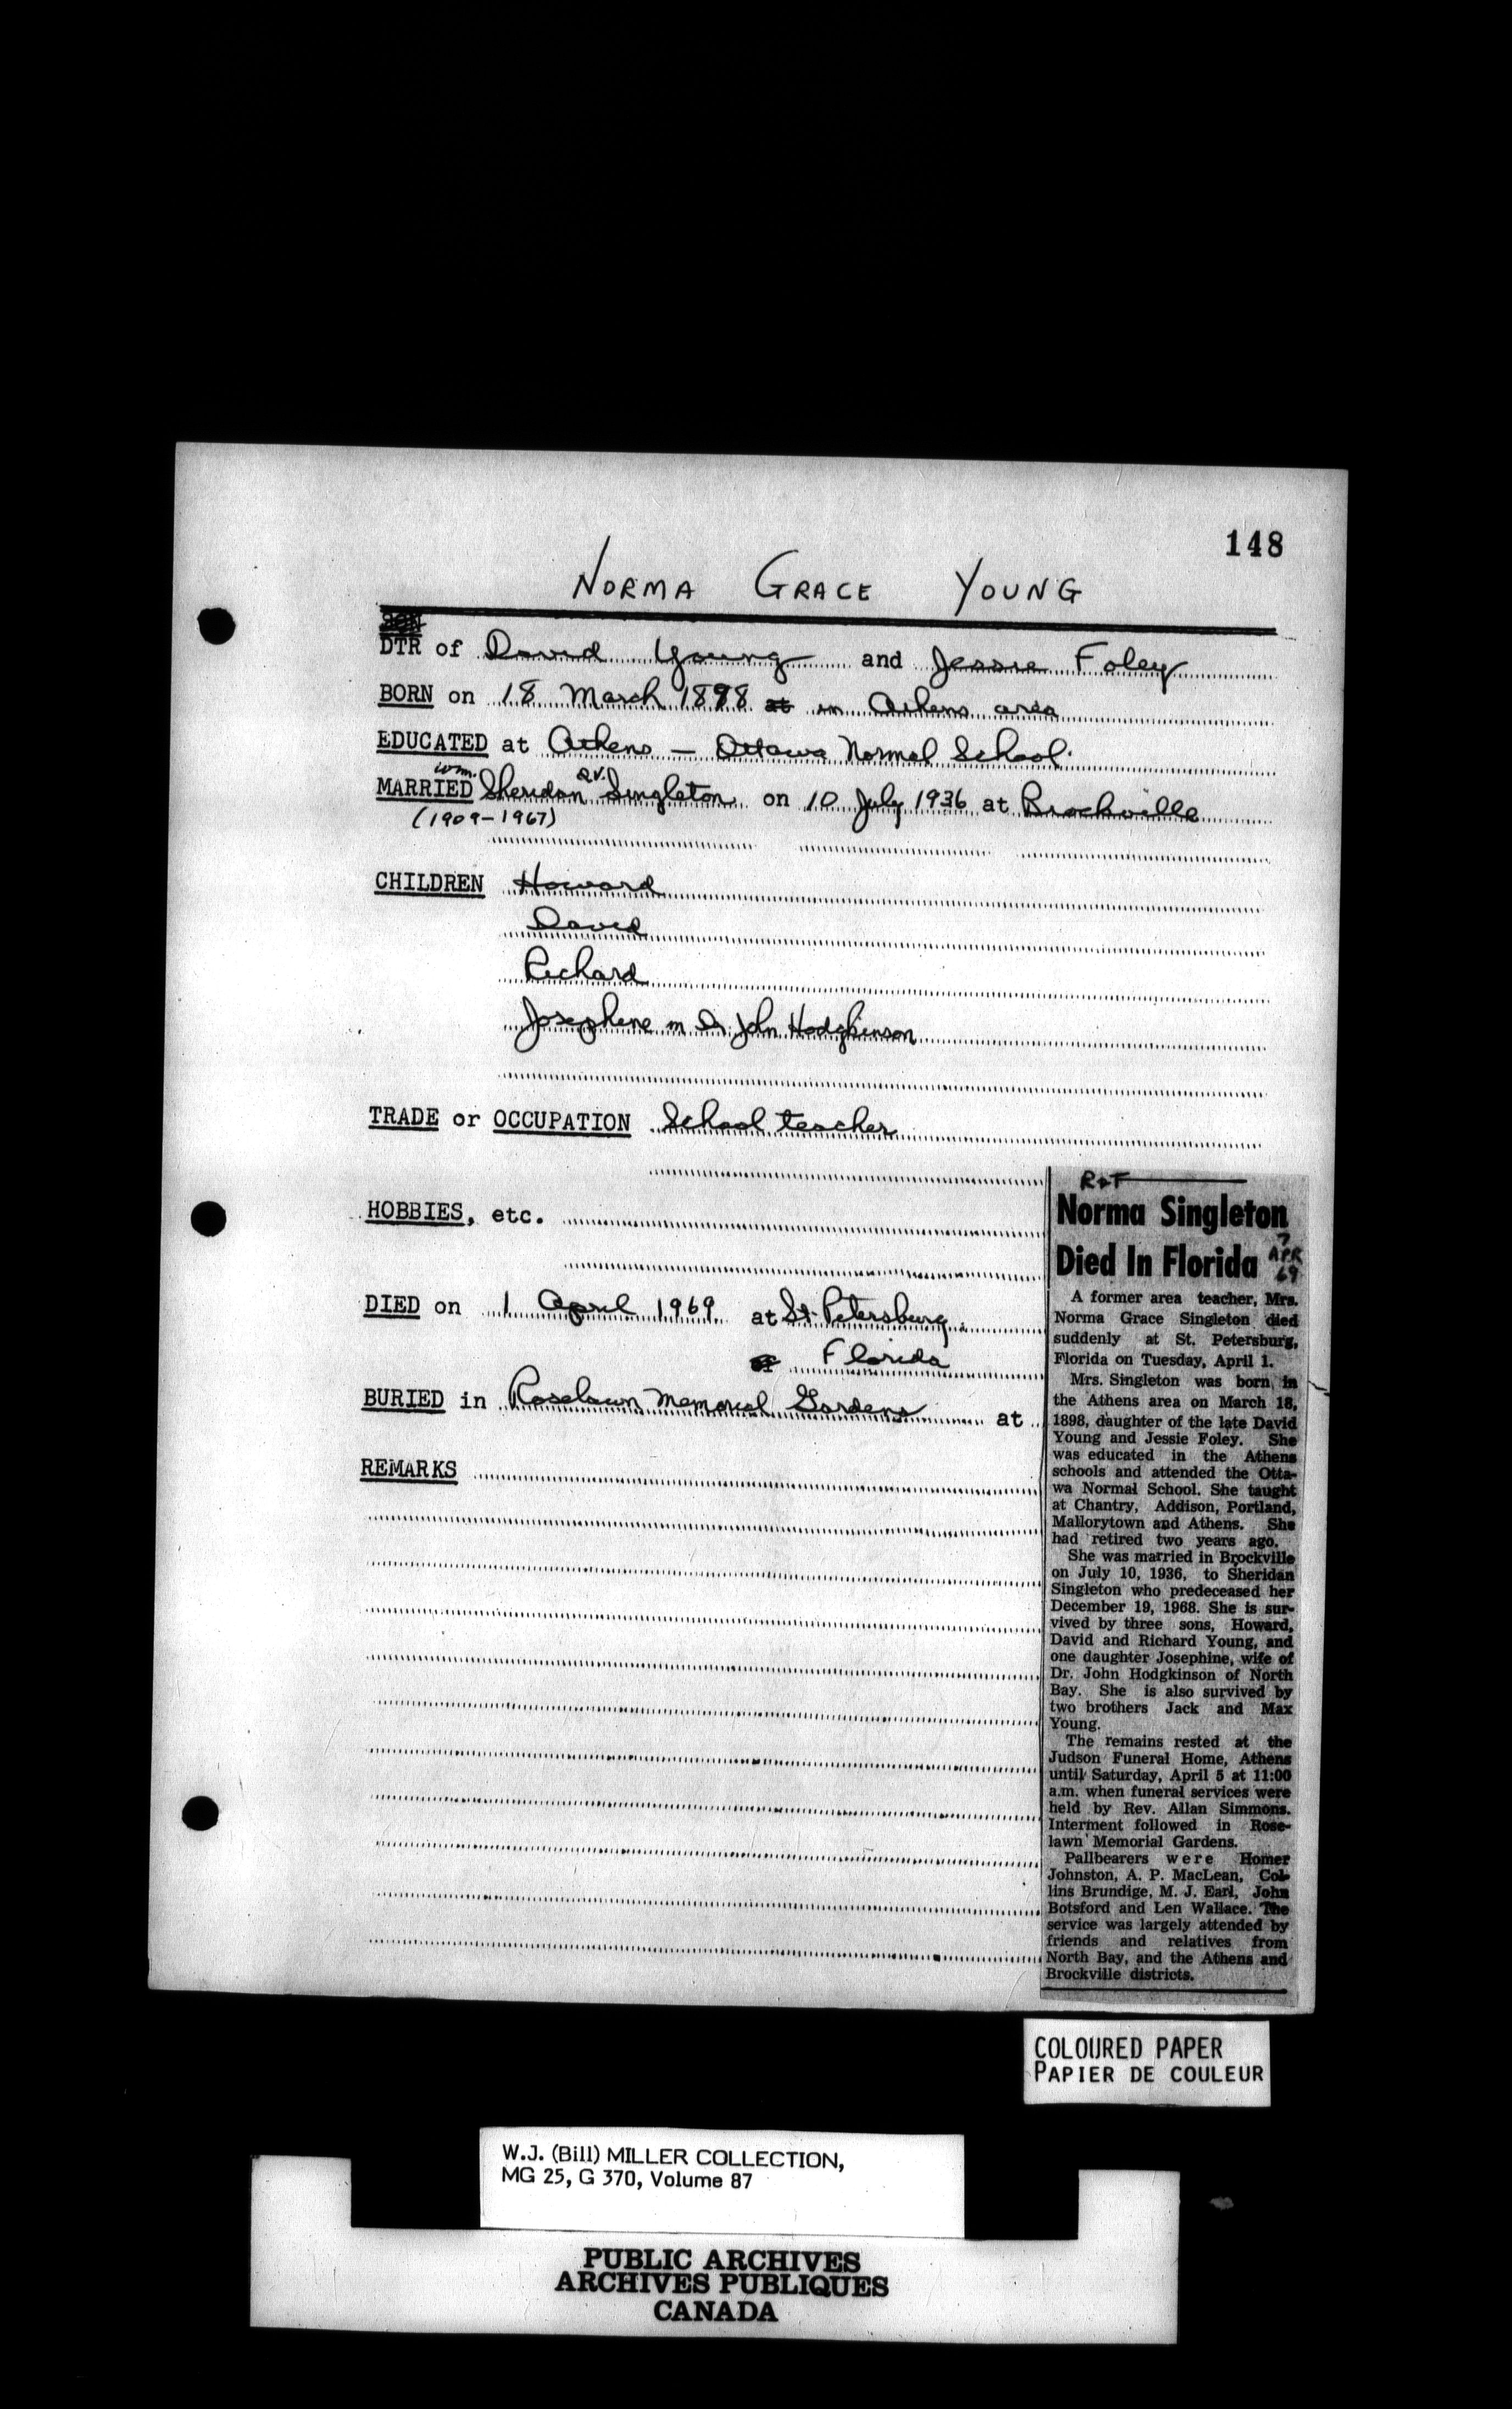 148
NORMA GRACE YOUNG
SON
DTR of David Young and Jessie Foley
BORN on 18 March 1898 at in Athens area
EDUCATED at Athens — Ottawa Normal School
MARRIED Wm. Sheridan q.v. Singleton on 10 July 1936 at Brockville
(1909-1967)
CHILDREN Howard
David
Richard
Josephine m Dr John Hodgkinson
TRADE or OCCUPATION School teacher
HOBBIES, etc.
DIED on 1 April 1969 at St. Petersburg
Florida
BURIED in Roselawn Memorial Gardens at
REMARKS
R&T
Norma Singleton
Died In Florida
7 APR 69
A former area teacher, Mrs.
Norma Grace Singleton died
suddenly at St. Petersburg,
Florida on Tuesday, April 1.
Mrs. Singleton was born in
the Athens area on March 18,
1898, daughter of the late David
Young and Jessie Foley. She
was educated in the Athens
schools and attended the Otta-
wa Normal School. She taught
at Chantry, Addison, Portland,
Mallorytown and Athens. She
had retired two years ago.
She was married in Brockville
on July 10, 1936, to Sheridan
Singleton who predeceased her
December 19, 1968. She is sur-
vived by three sons, Howard,
David and Richard Young, and
one daughter Josephine, wife of
Dr. John Hodgkinson of North
Bay. She is also survived by
two brothers Jack and Max
Young.
The remains rested at the
Judson Funeral Home, Athens
until Saturday, April 5 at 11:00
a.m. when funeral services were
held by Rev. Allan Simmons.
Interment followed in Rose-
lawn Memorial Gardens.
Pallbearers were Homer
Johnston, A. P. MacLean, Col-
lins Brundige, M. J. Earl, John
Botsford and Len Wallace. The
service was largely attended by
friends and relatives from
North Bay, and the Athens and
Brockville districts.
COLOURED PAPER
PAPIER DE COULEUR
W.J. (Bill) MILLER COLLECTION,
MG 25, G 370, Volume 87
PUBLIC ARCHIVES
ARCHIVES PUBLIQUES
CANADA